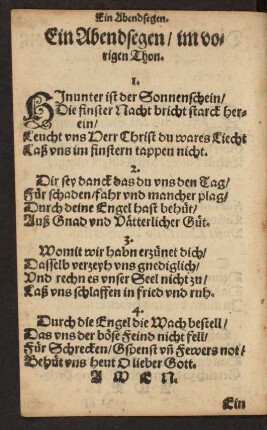 Ein Abendsegen.
Ein Abendsegen/ im vo-
rigen Thon.
1.
HInunter ist der Sonnenschein/
Die finster Nacht bricht starck her-
ein/
Leucht vns Herr Christ du wares Liecht
Laß vns im finstern tappen nicht.
2.
Dir sey danck das du vns den Tag/
Für schaden/ fahr vnd mancher plag/
Durch deine Engel hast behüt/
Auß Gnad vnd Vätterlicher Güt.
3.
Womit wir habn erzünet dich/
Dasselb verzeyh vns gnediglich/
Vnd rechn es vnser Seel nicht zu/
Laß vns schlaffen in fried vnd ruh.
4.
Durch die Engel die Wach bestell/
Das vns der böse Feind nicht fell/
Für Schrecken/ Gspenst vñ Fewers not/
Behüt vns heut O lieber Gott.
A M E N.
Ein